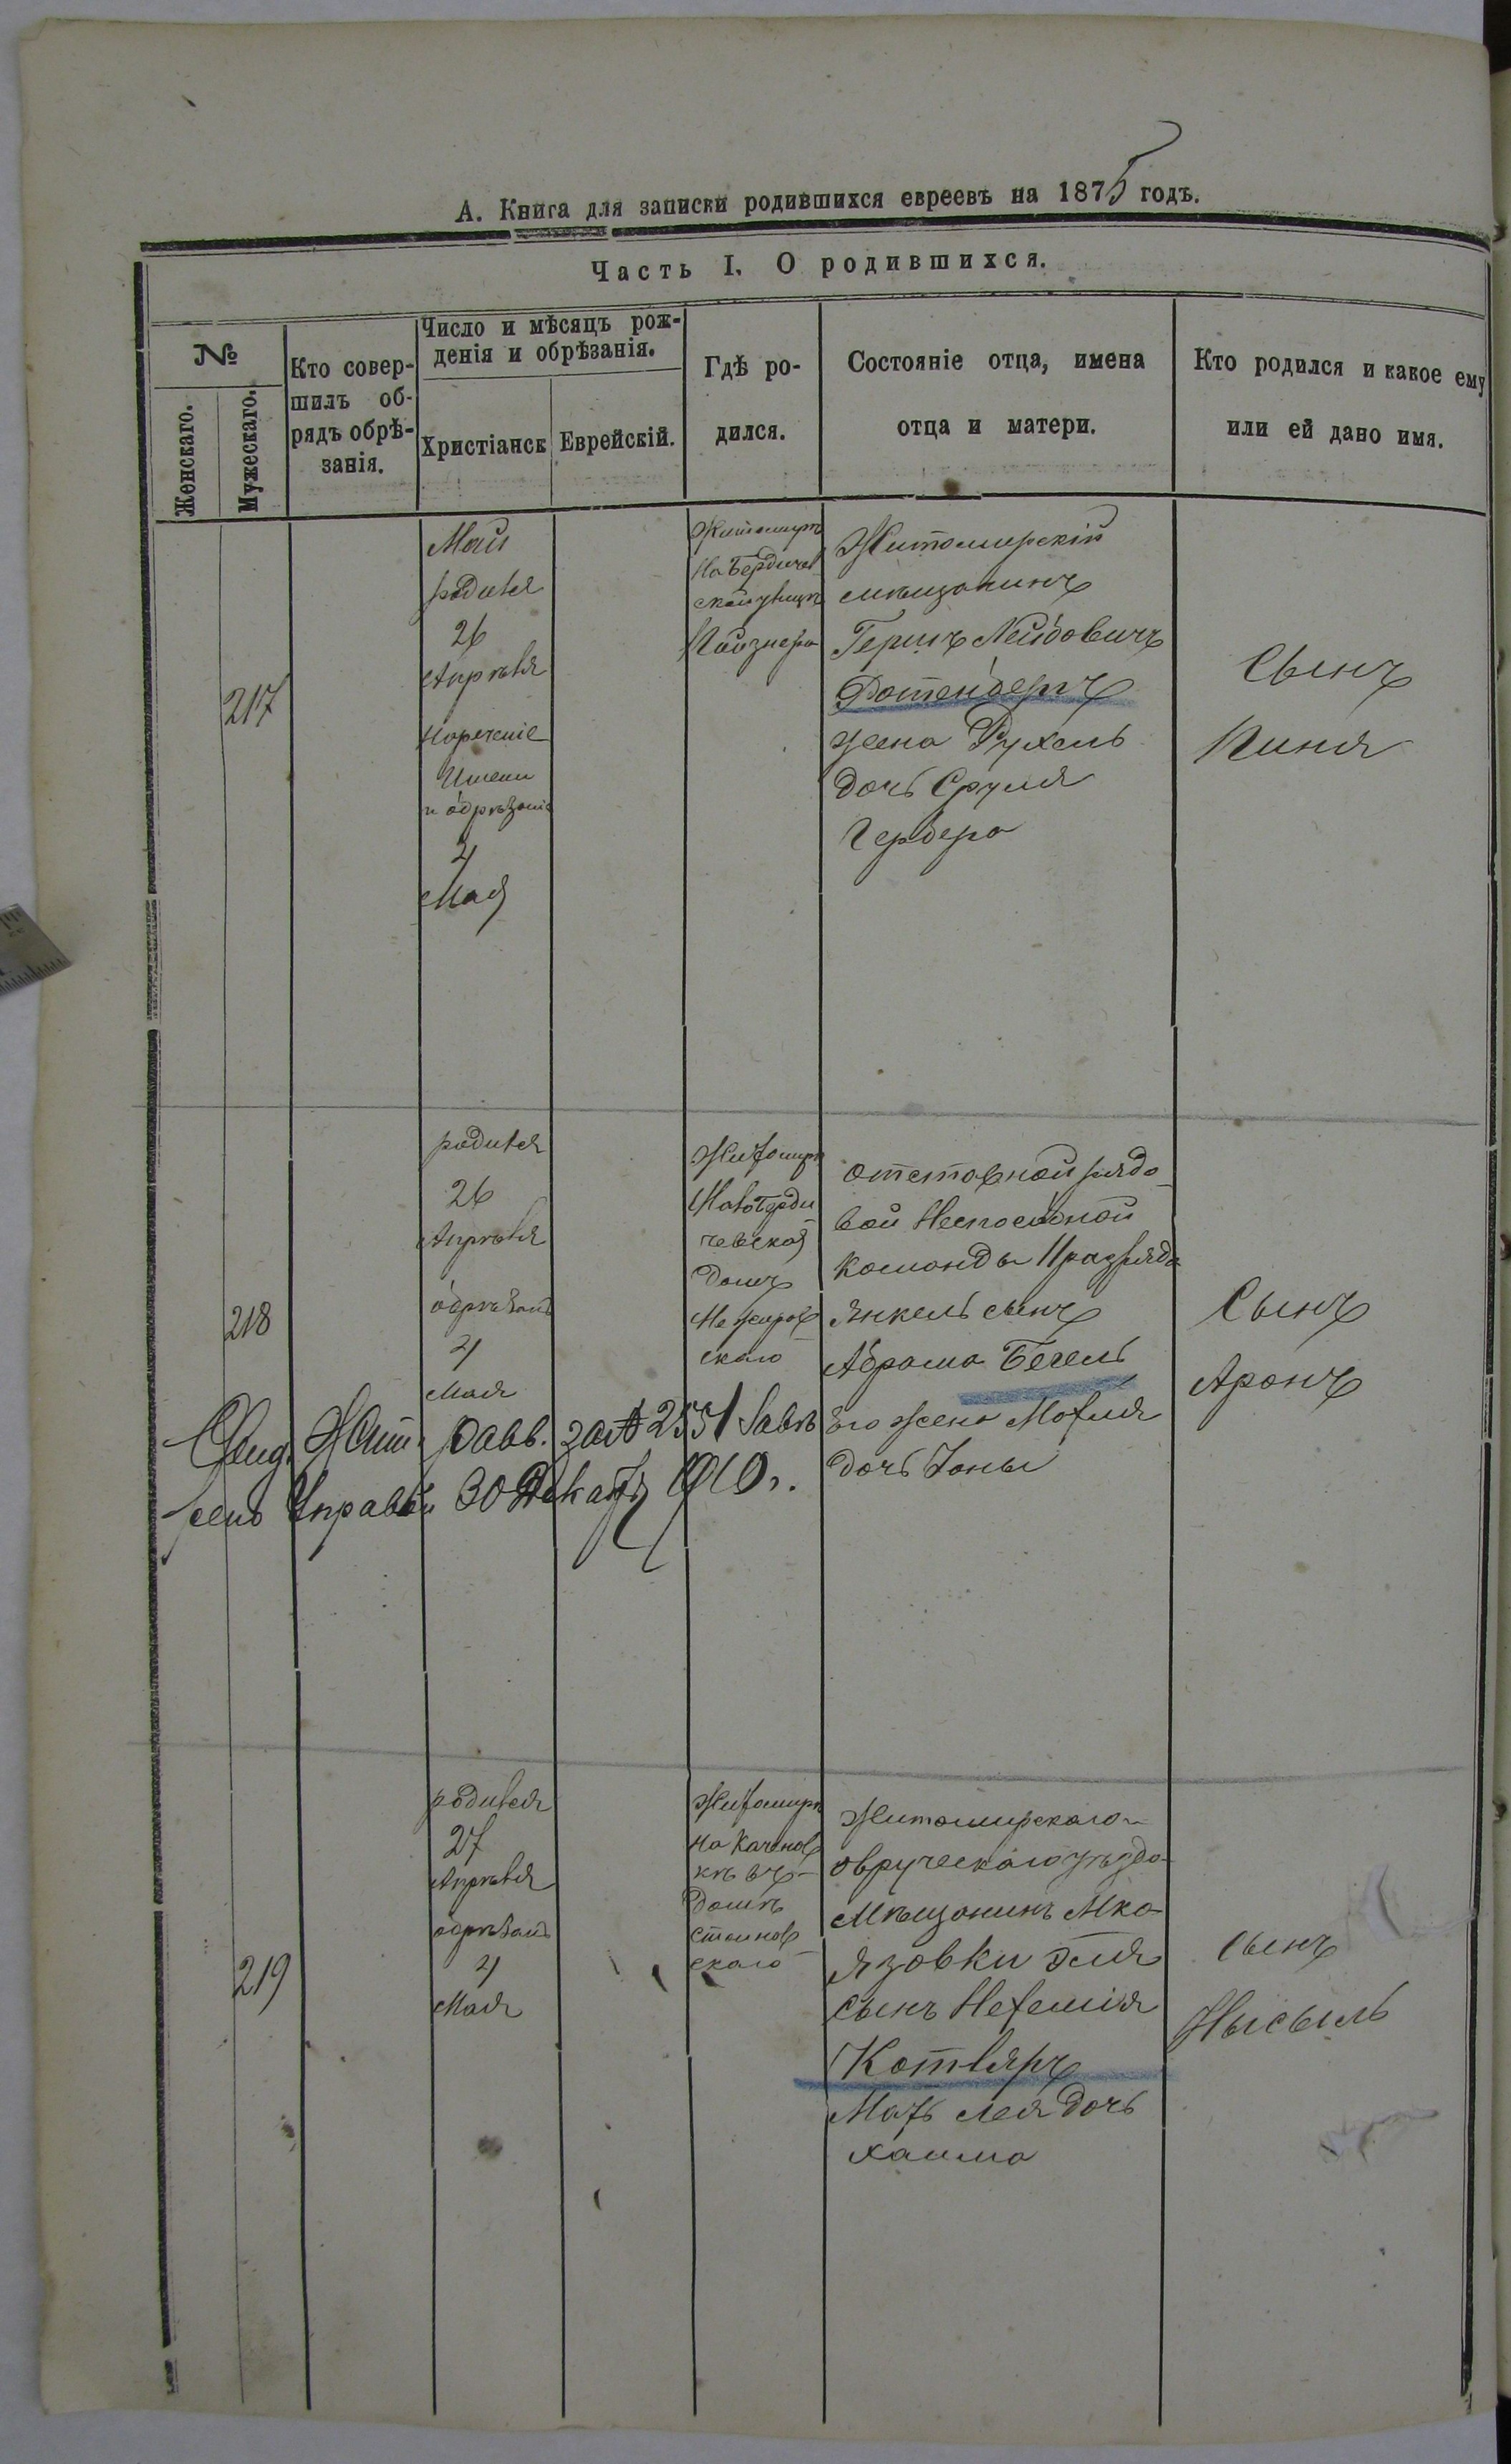 А. Книга для записки родившихся евреевъ на 1875 годъ.
Часть I. О родившихся.
№
Женскаго.
Мужескаго.
Кто совер-
шилъ об-
рядъ обрѣ-
занія.
Число и мѣсяцъ рож-
денія и обрѣзанія.
Христіанск
Еврейскій.
Гдѣ ро-
дился.
Состояніе отца, имена
отца и матери.
Кто родился и какое ему
или ей дано имя.
217
Май
родился
26
Апрѣля
нареченіе
Имени
и обрѣзаніе
Мая
Житомирѣ
На Бердичев
ской улицѣ
Житомирскій
мѣщанинъ
Гершъ Лейбовичъ
Ротенбергъ
жена Рухель
дочь Сруля
Гербера
Сынъ
Пиня
218
родился
26
Апрѣля
обрѣзанъ
Мая
Житомирѣ
На Берди
чевской
домъ
скаго
отставной рядо
вой Неспособной
команды II разряда
Янкель сынъ
Абрама Бегель
Его жена Матля
дочь Іоны
Сынъ
Аронъ
Жит. равв. за № 2551
Управы 30 Декабря 1910 г.
219
родился
27
Апрѣля
обрѣзанъ
Мая
Житомирѣ
на Каченов
кѣ въ
домѣ
скаго
Житомирскаго
овручскаго уѣзда
Мѣщанинъ
сынъ Нехемія
Котляръ
Мать Лея дочь
Хаима
сынъ
Нысыль